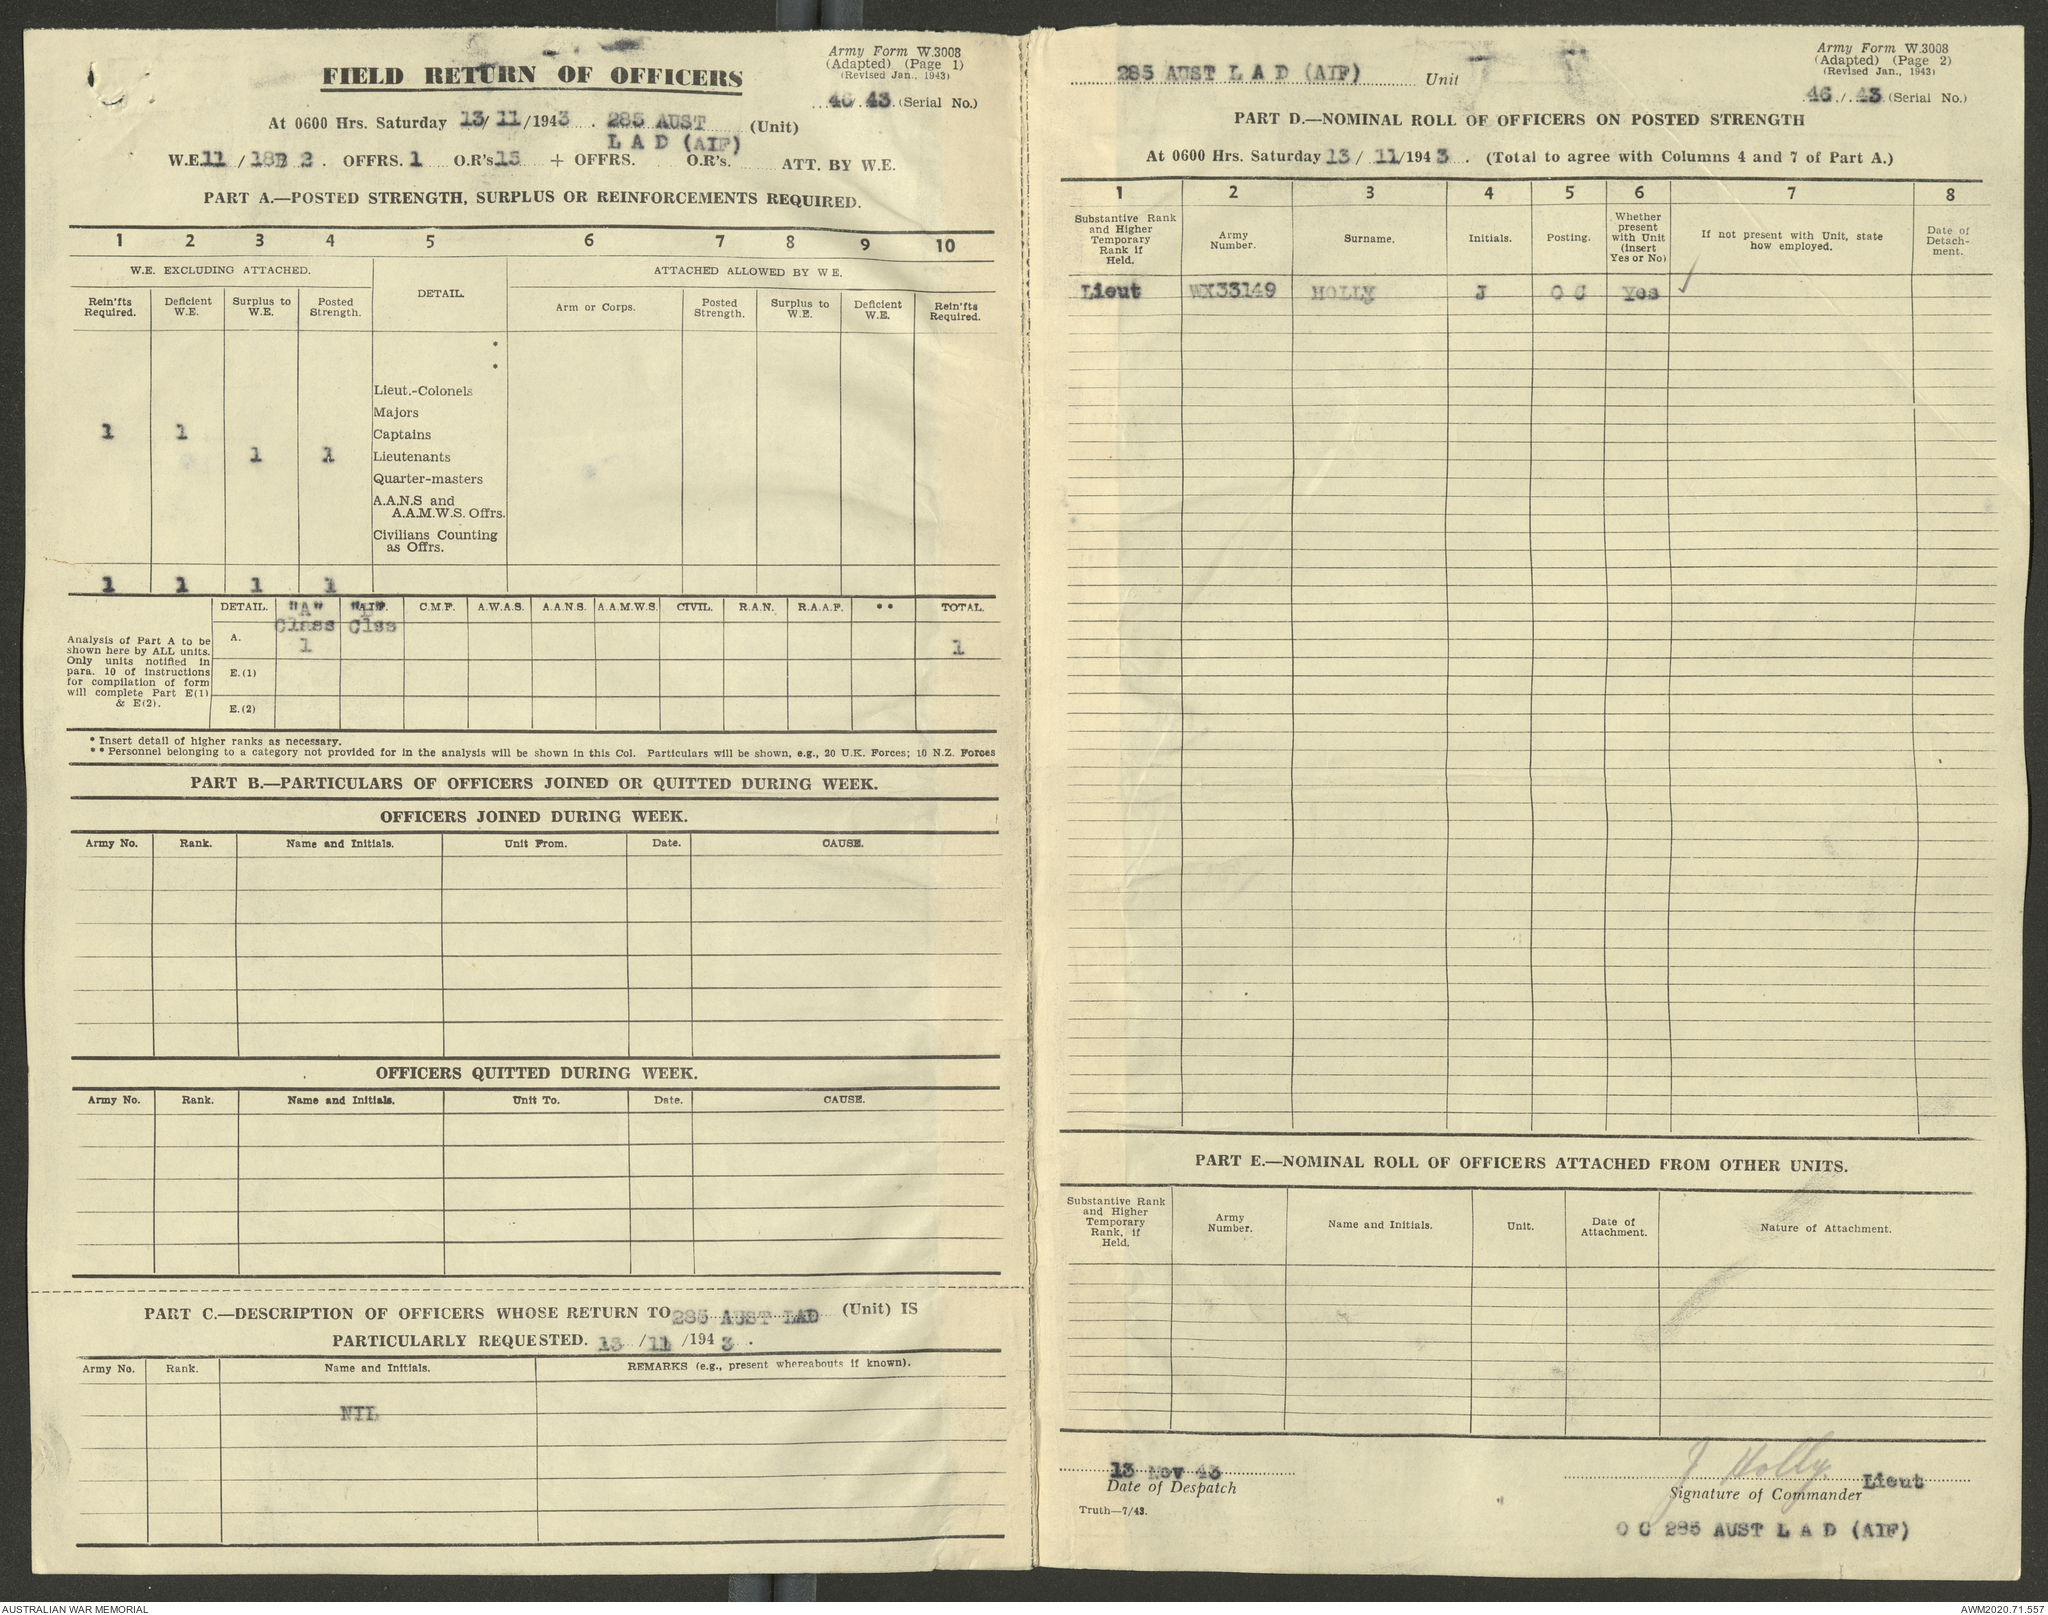 FIELD RETURN OF OFFICERS
Army Form W.3008
(Adapted) (Page 1)
(Revised Jan., 1943)
46/43 (Serial No.)
At 0600 Hrs. Saturday 13/11/1943. 285 AUST (Unit)
L A D (AIF)
W.E. 11 / 18B 2. OFFRS. 1 O.R's. 15 + OFFRS. O.R's. ATT. BY W.E.
PART A.—POSTED STRENGTH, SURPLUS OR REINFORCEMENTS REQUIRED.
1 2 3 4 5 6 7 8 9 10
W.E. EXCLUDING ATTACHED. DETAIL. ATTACHED ALLOWED BY W E.
Rein'fts Required. Deficient W.E. Surplus to W.E. Posted Strength. Arm or Corps. Posted Strength. Surplus to W.E. Deficient W.E. Rein'fts Required.
*
*
Lieut.-Colonels
Majors
1 1 Captains
1 1 Lieutenants
Quarter-masters
A.A.N.S and
A.A.M.W.S. Offrs.
Civilians Counting
as Offrs.
1 1 1 1
DETAIL. "A" Class Clss C.M.F. A.W.A.S. A.A.N.S. A.A.M.W.S. CIVIL. R.A.N. R.A.A.F. ** TOTAL.
Analysis of Part A to be
shown here by ALL units.
Only units notified in
para. 10 of instructions
for compilation of form
will complete Part E(1)
& E(2).
A. 1 1
E.(1)
E.(2)
* Insert detail of higher ranks as necessary.
** Personnel belonging to a category not provided for in the analysis will be shown in this Col. Particulars will be shown, e.g., 20 U.K. Forces; 10 N.Z. Forces
PART B.—PARTICULARS OF OFFICERS JOINED OR QUITTED DURING WEEK.
OFFICERS JOINED DURING WEEK.
Army No. Rank. Name and Initials. Unit From. Date. CAUSE.
OFFICERS QUITTED DURING WEEK.
Army No. Rank. Name and Initials. Unit To. Date. CAUSE.
PART C.—DESCRIPTION OF OFFICERS WHOSE RETURN TO 285 AUST LAD (Unit) IS
PARTICULARLY REQUESTED. 13 /11 /194 3 .
Army No. Rank. Name and Initials. REMARKS (e.g., present whereabouts if known).
NIL
285 AUST L A D (AIF) Unit
Army Form W.3008
(Adapted) (Page 2)
(Revised Jan., 1943)
46 / 43 (Serial No.)
PART D.—NOMINAL ROLL OF OFFICERS ON POSTED STRENGTH
At 0600 Hrs. Saturday 13/ 11/194 3 . (Total to agree with Columns 4 and 7 of Part A.)
1 2 3 4 5 6 7 8
Substantive Rank and Higher Temporary Rank if Held. Army Number. Surname. Initials. Posting. Whether present with Unit (insert Yes or No) If not present with Unit, state how employed. Date of Detach-ment.
Lieut WX33149 HOLLY J O C Yes ✓
PART E.—NOMINAL ROLL OF OFFICERS ATTACHED FROM OTHER UNITS.
Substantive Rank and Higher Temporary Rank, if Held. Army Number. Name and Initials. Unit. Date of Attachment. Nature of Attachment.
13 Nov 43
Date of Despatch
J Holly Lieut
Signature of Commander
Truth—7/43.
O C 285 AUST L A D (AIF)
AUSTRALIAN WAR MEMORIAL
AWM2020.71.557